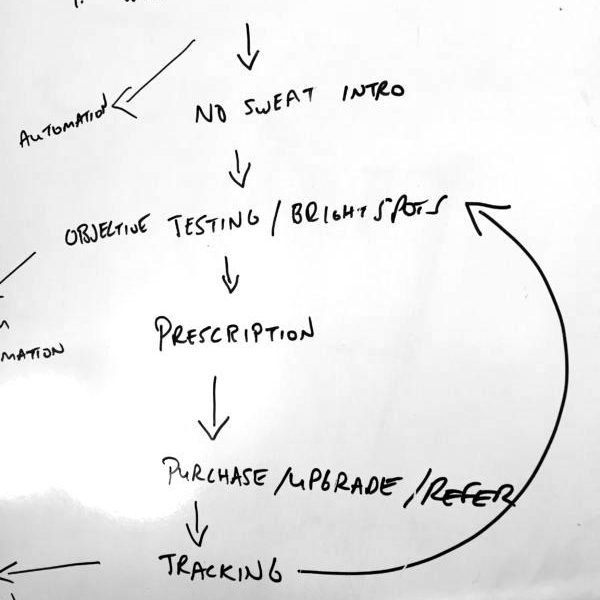 AUTOMATION
NO SWEAT INTRO
OBJECTIVE TESTING / BRIGHT SPOTS
PRESCRIPTION
MATION
PURCHASE / UPGRADE / REFER
TRACKING